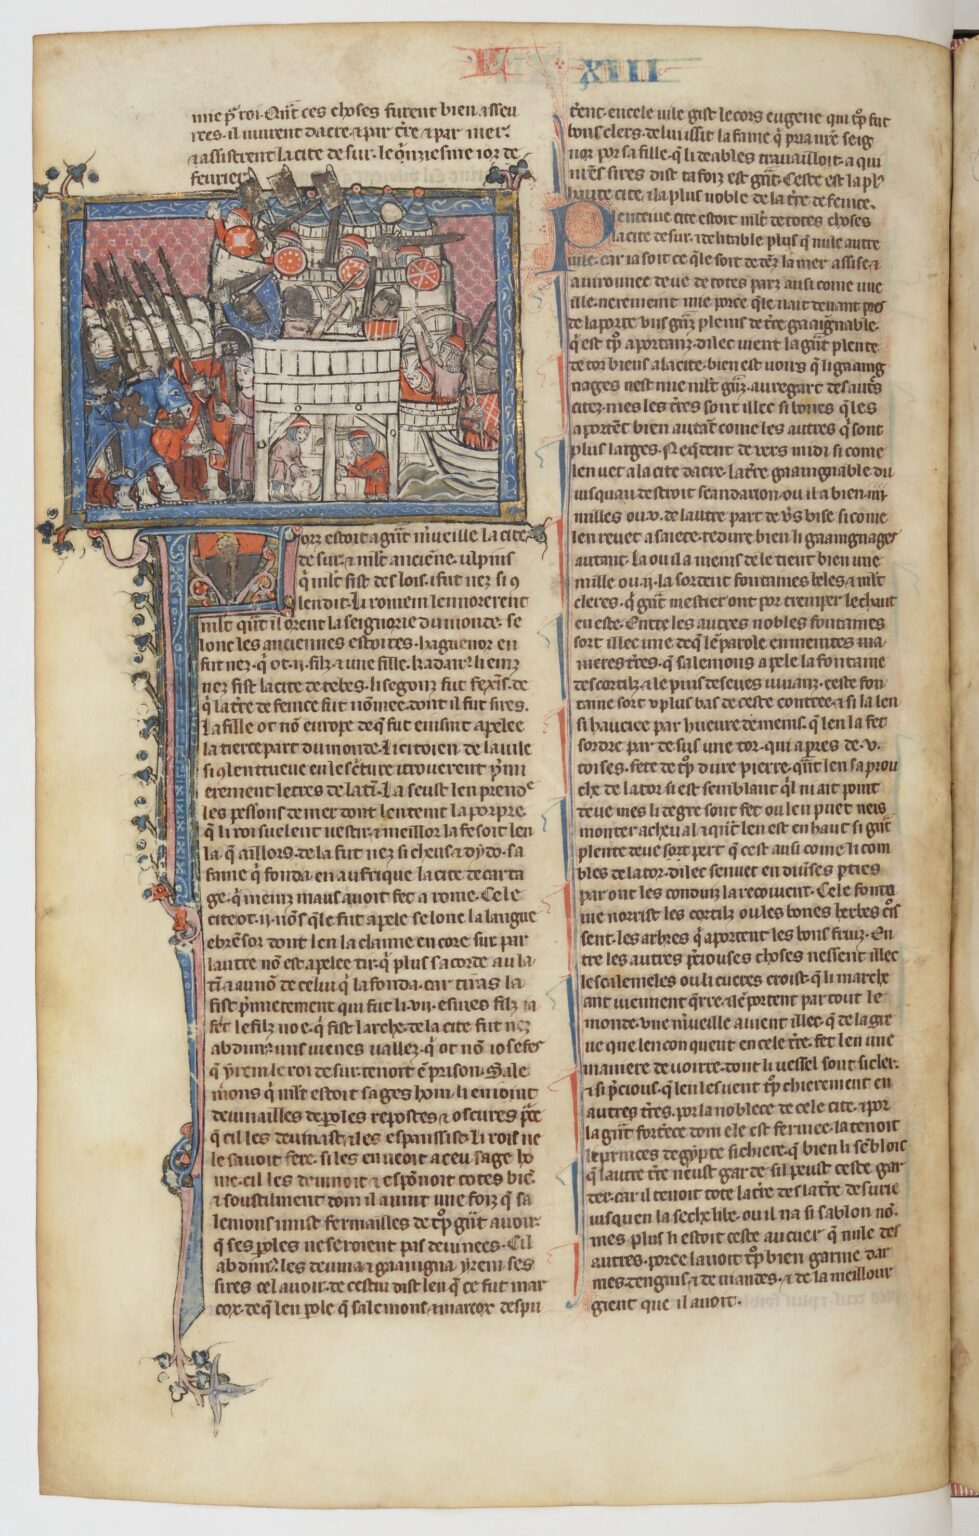 L XIII
mie por roi. Qant ces choses furent bien asseu
rees. il murent dacre & par terre & par mer.
& assistrent la cite de sur. le quinziesme ior de
fevrier
Fort estoit a grant merveille la cite
de sur & mlt anciene. ulpius
q mlt fist des lois. i fut nez si 9
len dit. li romein lennorerent
mlt quant il orent la seignorie du monde. se
lonc les anciennes estoires. hagenor en
fut nez. q ot .ii. filz & une fille. kadamus li einz
nez fist la cite de tebes. li segonz fut fexnis. de
q la terre de fenice fut nomee. dont il fut sires.
La fille ot nom europe. de q fut ensint apelee
la tierce part du monde. li citoien de la vile
si 9 len trueve en lescriture trouerent primi
erement letres de latin. La seust len prendre
les pessons de mer dont len teint la porpre.
q li roi suelent vestir. & meillor la fesoit len
la q aillors. de la fut nez sicheus & dydo. sa
fame q fonda en aufrique la cite de carta
ge. q meinz maus avoit fet a rome. Cele
cite ot .ii. nons qle fut apele selonc la langue
ebre sor dont len la claime encore sur par
lautre nom est apelee tir. q plus sacorde au la
tin & au nom de celui q la fonda. car tiras la
fist primierement qui fut li .vii. esmes filz ia
fet le filz noe. q fist larche. de la cite fut nez
abdimus uns iuenes vallez. q ot nom iosefes
q yrem le roi de sur. tenoit en prison. Sale
mons q mlt estoit sages hom. li enioint
devinailles de poles repostes & oscures por ce
q cil les devinast & les espausist. li rois ne
le savoit fere. si les enveoit a ceu sage ho
me. cil les devinoit & esponoit totes bien
& soustilment dom il avint une foiz q sa
lemons i mist fermailles de trop grant avoir.
q ses poles ne seroient pas devinees. Cil
abdimus les devina & gaaigna yrem ses
sires cel avoir. de cestui dist len q ce fut mar
cox. de q len pole q salemons & marcox despu
terent. en cele vile gist le cors eugene qui trop fut
bons clers. de lui issit la fame q pria nostre seig
nor por sa fille. q li deables travailloit. a qui
nostres sires dist ta foiz est grant. Ceste est la plus
haute cite. & la plus noble de la terre de fenice.
Plenteive cite estoit mlt de totes choses
la cite de sur. & delitable plus q nule autre
vile. car ia soit ce qle soit dedenz la mer assise &
avironnee deve de totes parz ausi come une
isle. neremeint mie porce qle nait devant pres
de la porte uns granz pleins de terre gaaignable.
q est trop aportanz. dilec vient la grant plente
de toz biens a la cite. bien est voirs q li gaaing
nages nest mie mlt granz. au regart des autres
citez. mes les terres sont illec si bones qles
aportent bien autant come les autres q sont
plus larges. Nequedent de vers midi si come
len vet a la cite dacre. la terre gaaingnable du
iusquau destroit scandarion. ou il a bien .iiii.
milles ou .v. de lautre part de vers bise si come
len revet a saiete. redure bien li gaaingnages
autant. la ou il a meins dele tient bien une
mille ou .ii. la sordent fontaines beles & mlt
cleres. q grant mestier ont por tremper le chaut
en este. Entre les autres nobles fontaines
sort illec une de q len parole en meintes ma
nieres terres. q salemons apele la fontaine
des cortilz & le puis des eves vivanz. ceste fon
taine sort v plus bas de ceste contree. & si la len
si haucice par huevre de meins. q len la fet
sordre par desus une tor. qui apres de .v.
toises. fete de trop dure pierre. qant len saprou
che de la tor si est semblant ql ni ait point
deve mes li degre sont fet ou len puet neis
monter a cheval & qant len est en haut si grant
plente deve sort pert q cest ausi come li com
bles de la tor. dilec sen vet en diverses parties
par ont les conduiz la recoivent. Cele fontai
ne norrist les cortilz ou les bones herbes crois
sent. les arbres q aportent les bons fruiz. En
tre les autres precieuses choses nessent illec
les calemeles ou li cucres croist. q li marche
ant viennent querre. & enportent par tout le
monde. une merveille avient illec. q de la gre
ve que len conquent en cele terre. fet len une
maniere de voirre. dont li vessel sont si cler.
& si precious. q len les vent trop chierement en
autres terres. por la noblece de cele cite. & por
la grant forterece dom ele est fermee. la tenoit
le princes degypte si chiere. q bien li sembloit
q lautre terre neust garde sil peust ceste gar
der. car il tenoit tote la terre des la terre de surie
iusquen la seche libe. ou il na si sablon non.
mes plus li estoit ceste au cuer q nule des
autres. porce lavoit trop bien garnie dar
mes. dengins & de viandes. & de la meillour
gient que il avoit.